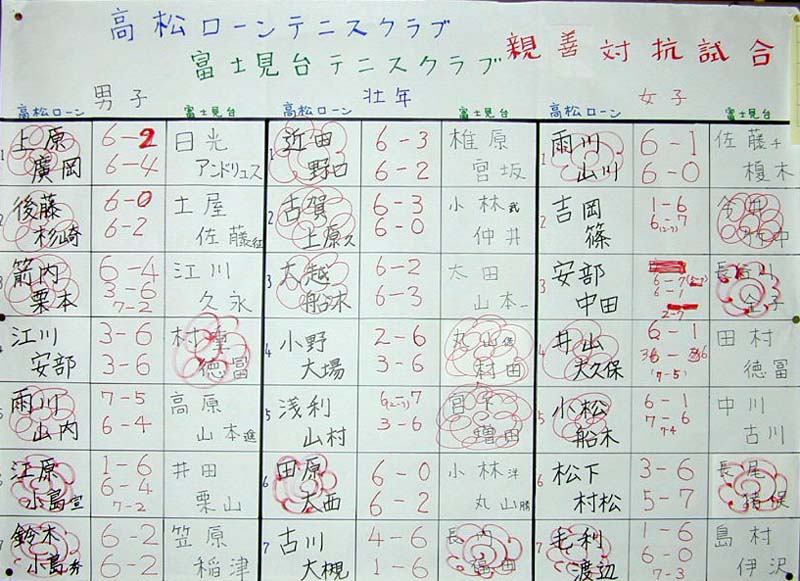 高松ローンテニスクラブ
富士見台テニスクラブ 親善対抗試合
男子 壮年 女子
高松ローン 富士見台 高松ローン 富士見台 高松ローン 富士見台
1 上原 6-2 日光 近田 6-3 椎原 1 雨川 6-1 佐藤千
廣岡 6-4 アンドリュス 野口 6-2 宮坂 山川 6-0 榎木
2 後藤 6-0 土屋 2 古賀 6-3 小林武 2 吉岡 1-6
杉崎 6-2 佐藤 上原久 6-0 仲井 篠 6(2-7)7
3 箭内 6-4 江川 大越 6-2 太田 3 安部 6-7(5-7) 長谷川
栗本 3-6 久永 船木 6-3 山本一 中田 6-1 金子
7-2 2-7
江川 3-6 村 4 小野 2-6 丸山 4 井山 6-1 田村
安部 3-6 徳冨 大場 3-6 村田 大久保 3-6 徳冨
(7-5)
5 雨川 7-5 高原 5 浅利 6(2-7)7 宮子 5 小松 6-1 中川
山内 6-4 山本進 山村 3-6 増田 船木 7-6 古川
7-4
江原 1-6 井田 6 田原 6-0 小林洋 6 松下 3-6 長尾
小島宣 6-4 栗山 大西 6-2 丸山勝 村松 5-7 猪俣
7-2
7 鈴木 6-2 笠原 7 古川 4-6 長内 7 毛利 1-6 島村
小島秀 6-2 稲津 大槻 1-6 福田 渡辺 6-0 伊沢
7-3